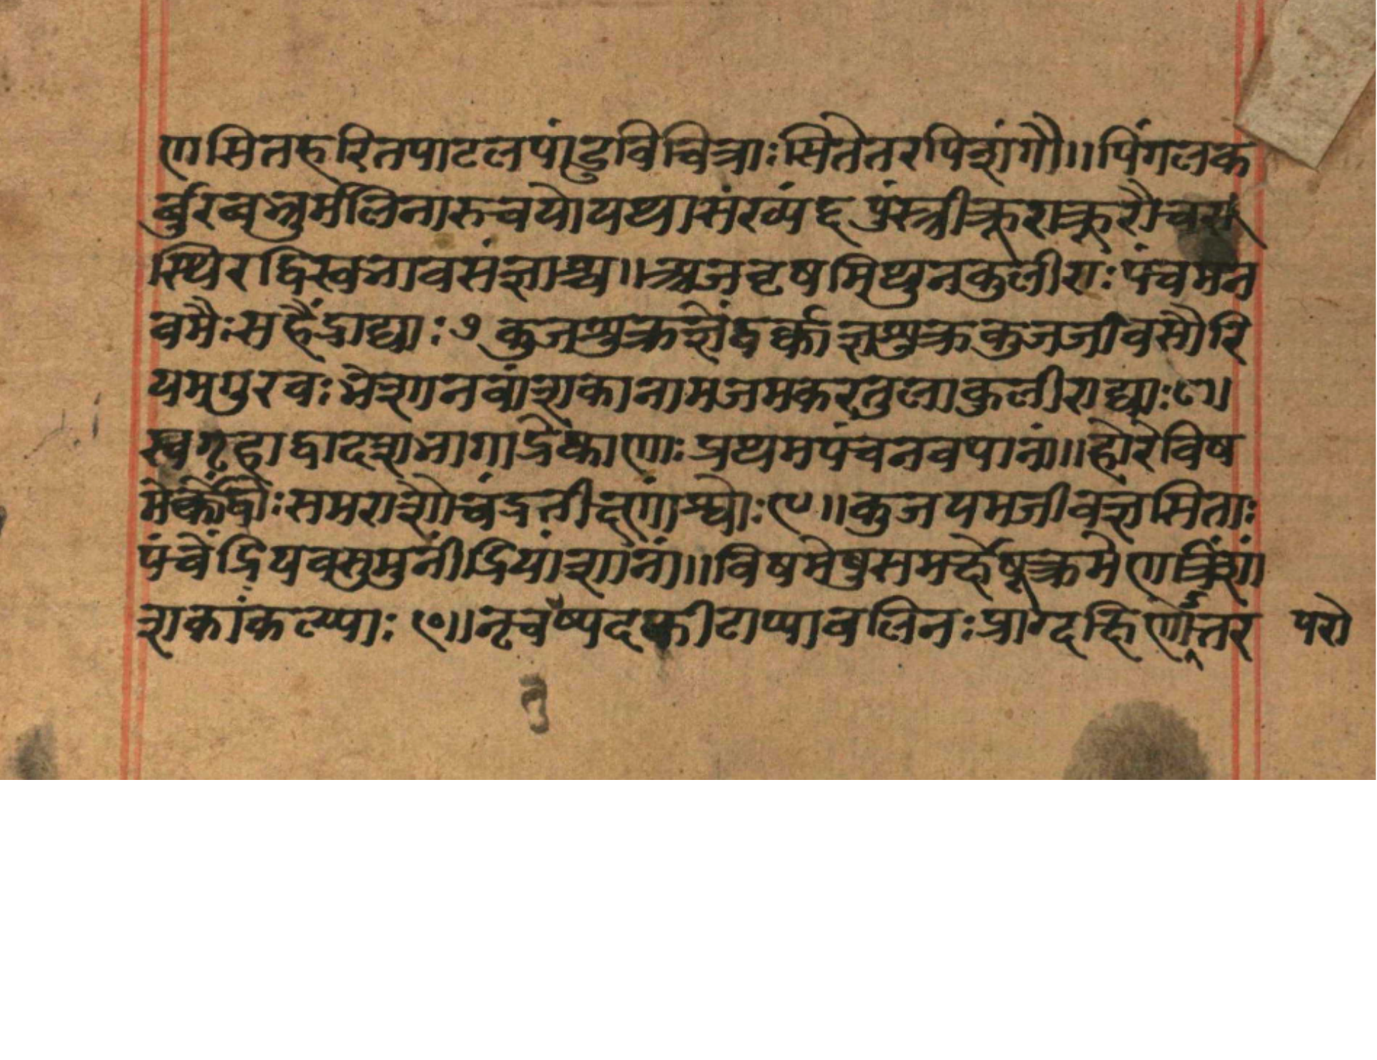 ण सितहरितपाटलपांडुविचित्राः सितेतरपिशंगौ ॥ पिंगलक
र्बुरबभ्रुमलिनारुचयो यथासंख्यं ६ पुंस्त्रीक्रूराक्रूरौ चरा
स्थिरद्विस्वभावसंज्ञाश्च ॥ अजवृषमिथुनकुलीराः पंचमन
वमैः सहैंद्राद्याः ७ कुजशुक्रज्ञेंद्वर्कज्ञशुक्रकुजजीवसौरि
यमगुरवः भेशानवांशकानामजमकरतुलाकुलीराद्याः ८॥
स्वगृहाद्वादशभागाद्रेष्काणाः प्रथमपंचनवपानां ॥ होरेविष
मेर्केंद्वोः समराशौ चंद्रतीक्ष्णांश्वोः ९॥ कुजयमजीवज्ञसिताः
पंचेंद्रियवसुमुनींद्रियांशानां ॥ विषमेषु समर्क्षेषूत्क्रमेण त्रिंशां
शकां कल्प्याः १०॥ नृचतुष्पदकीटाप्या वलिनः प्राग्दक्षिणोत्तर परो